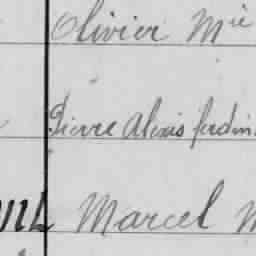 Olivier Mie
Pierre Alexis Ferdin
Marcel M